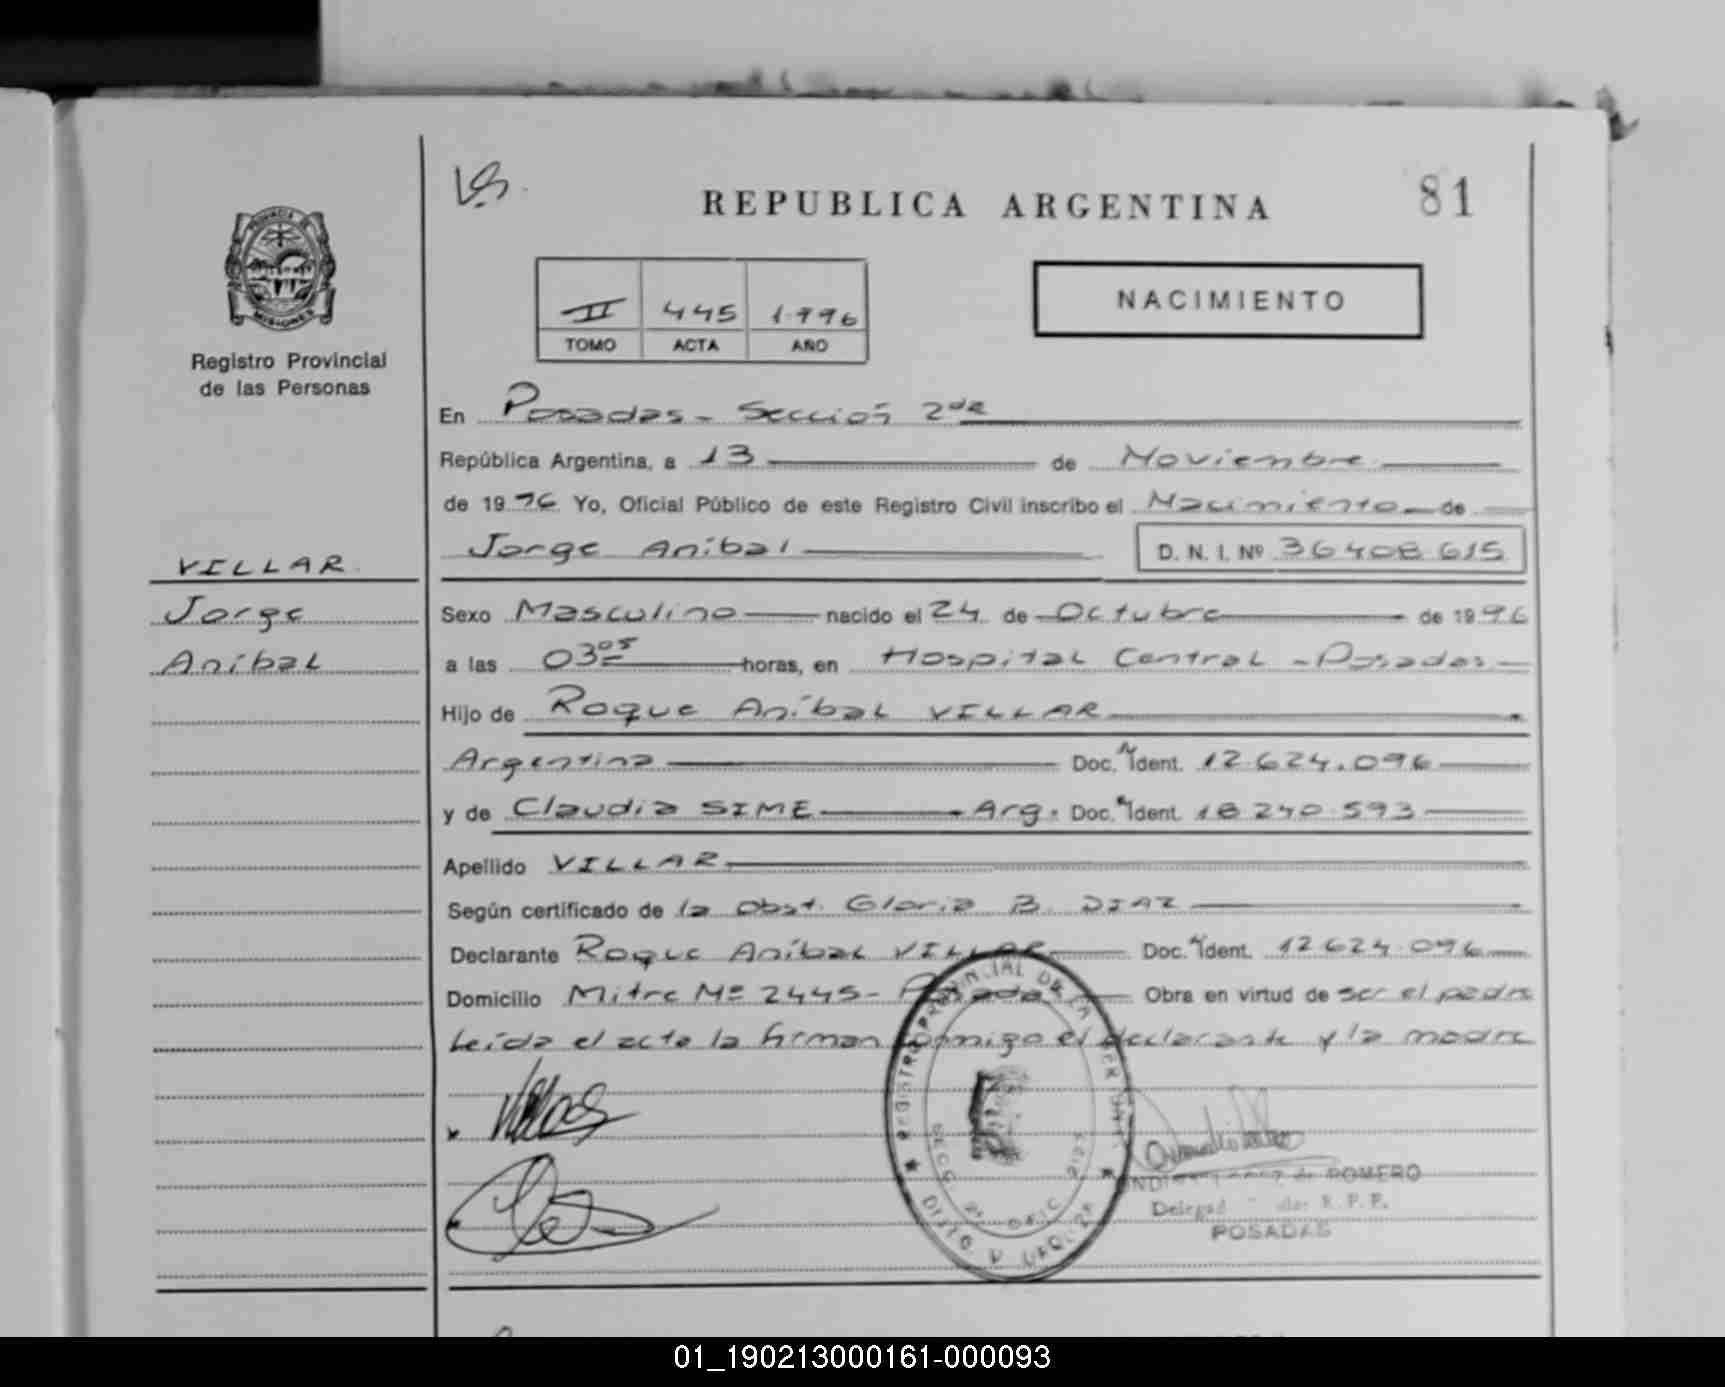 81
REPUBLICA ARGENTINA
PROVINCIA DE
MISIONES
Registro Provincial
de las Personas
II 445 1.996
TOMO ACTA AÑO
NACIMIENTO
En Posadas - Sección 2da
República Argentina, a 13 de Noviembre
de 1996 Yo, Oficial Público de este Registro Civil inscribo el Nacimiento de
Jorge Aníbal D. N. I. Nº 36408615
VILLAR
Jorge
Aníbal
Sexo Masculino nacido el 24 de Octubre de 1996
a las 03 05 horas, en Hospital Central - Posadas
Hijo de Roque Aníbal VILLAR
Argentina Doc. Ident. 12.624.096
y de Claudia SIME Arg. Doc. Ident. 18 240 593
Apellido VILLAR
Según certificado de la Obst. Gloria B. DIAZ
Declarante Roque Aníbal VILLAR Doc. Ident. 12 624 096
Domicilio Mitre Nº 2445 - Posadas Obra en virtud de ser el padre
Leída el acta la firman conmigo el declarante y la madre
REGISTRO PROVINCIAL DE LA PER
SECC 2ª OFIC
de ROMERO
R. P. P.
POSADAS
01_190213000161-000093